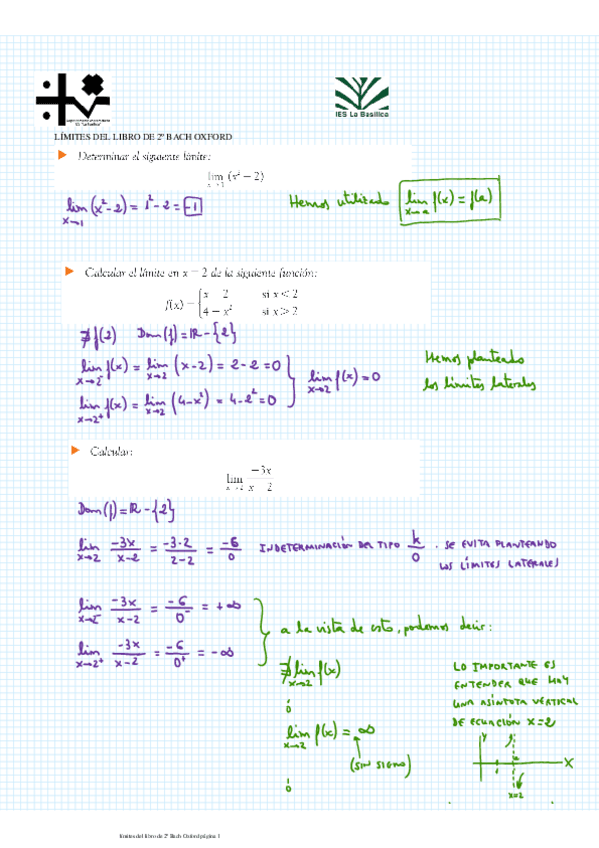 IES La Basílica
LÍMITES DEL LIBRO DE 2º BACH OXFORD
Determinar el siguiente límite:
lim x→1 (x² − 2)
lim x→1 (x²-2) = 1²-2 = -1
Hemos utilizado lim x→a f(x) = f(a)
Calcular el límite en x = 2 de la siguiente función:
f(x) = { x − 2 si x < 2
4 − x² si x > 2
∄ f(2) Dom(f) = ℝ - {2}
lim x→2⁻ f(x) = lim x→2 (x-2) = 2-2 = 0
lim x→2⁺ f(x) = lim x→2 (4-x²) = 4-2² = 0
lim x→2 f(x) = 0
Hemos planteado
los límites laterales
Calcular:
lim x→2 −3x/(x − 2)
Dom(f) = ℝ - {2}
lim x→2 -3x/(x-2) = -3·2/(2-2) = -6/0 INDETERMINACIÓN DEL TIPO k/0 . SE EVITA PLANTEANDO
LOS LÍMITES LATERALES
lim x→2⁻ -3x/(x-2) = -6/0⁻ = +∞
lim x→2⁺ -3x/(x-2) = -6/0⁺ = -∞
a la vista de esto, podemos decir:
∄ lim x→2 f(x)
ó
lim x→2 f(x) = ∞
(SIN SIGNO)
ó
LO IMPORTANTE ES
ENTENDER QUE HAY
UNA ASÍNTOTA VERTICAL
DE ECUACIÓN X=2
Y
X
x=2
límites del libro de 2º Bach Oxford página 1